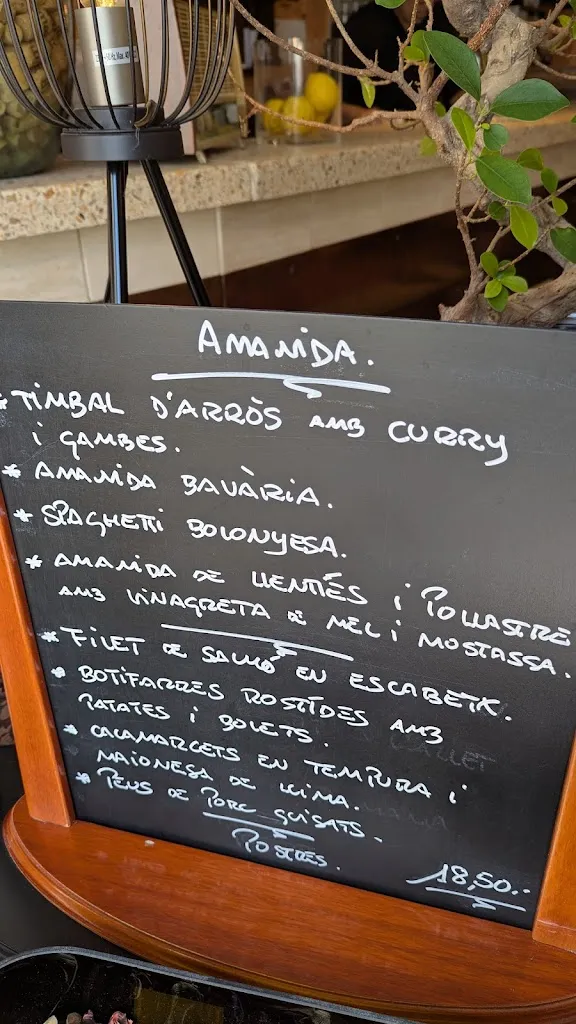 AMANIDA.
* TIMBAL D'ARRÒS AMB CURRY
i GAMBES.
* AMANIDA BAVÀRIA.
* SPAGHETTI BOLONYESA.
* AMANIDA DE LLENTIES i POLLASTRE
AMB VINAGRETA DE MEL i MOSTASSA.
* FILET DE SALMÓ EN ESCABETX.
* BOTIFARRES ROSTIDES AMB
PATATES i BOLETS.
* CALAMARCETS EN TEMPURA i
MAIONESA DE LLIMA.
* PEUS DE PORC GUISATS.
POSTRES.
18,50.-